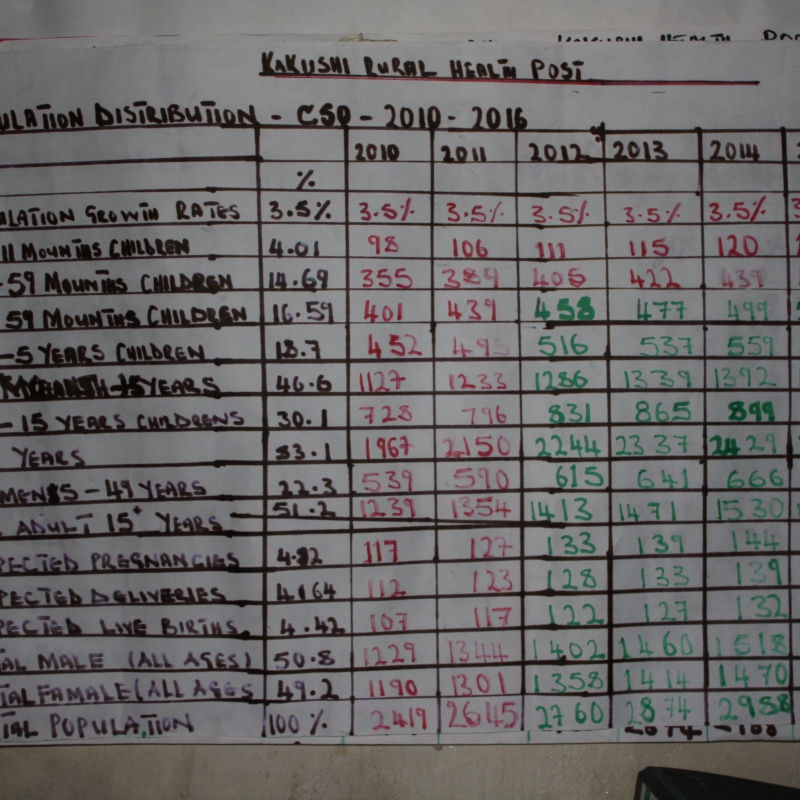 KAKUSHI RURAL HEALTH POST
ULATION DISTRIBUTION - CSO - 2010 - 2016
2010 2011 2012 2013 2014
%
ULATION GROWTH RATES 3.5% 3.5% 3.5% 3.5% 3.5% 3.5%
11 MOUNTHS CHILDREN 4.01 98 106 111 115 120
- 59 MOUNTHS CHILDREN 14.69 355 389 405 422 439
59 MOUNTHS CHILDREN 16.59 401 439 458 477 499
-5 YEARS CHILDREN 18.7 452 495 516 537 559
YEARS 46.6 1127 1233 1286 1339 1392
- 15 YEARS CHILDRENS 30.1 728 796 831 865 899
YEARS 83.1 1967 2150 2244 2337 2429
MEN15 - 49 YEARS 22.3 539 590 615 641 666
ADULT 15+ YEARS 51.2 1239 1354 1413 1471 1530
PECTED PREGNANCIES 4.92 117 127 133 139 144
PECTED DELIVERIES 4.164 112 123 128 133 139
PECTED LIVE BIRTHS 4.42 107 117 122 127 132
AL MALE (ALL AGES) 50.8 1229 1344 1402 1460 1518
TAL FAMALE (ALL AGES 49.2 1190 1301 1358 1414 1470
TAL POPULATION 100 % 2419 2645 2760 2874 2988